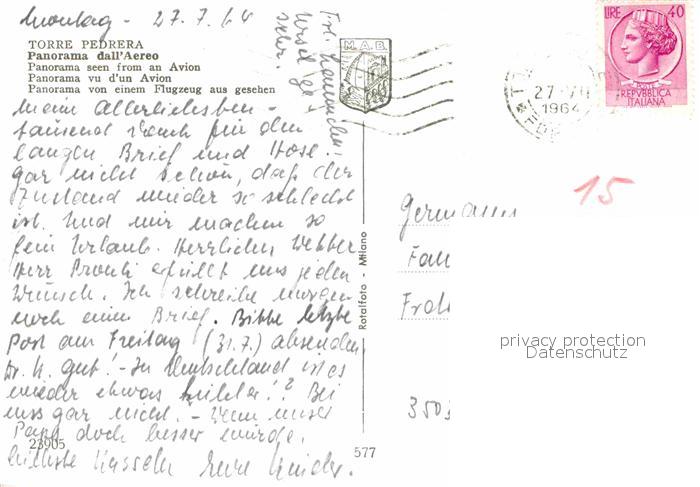 Montag - 27.7.64
TORRE PEDRERA
Panorama dall'Aereo
Panorama seen from an Avion
Panorama vu d'un Avion
Panorama von einem Flugzeug aus gesehen
M.A.B.
LIRE 40
POSTE
REPVBBLICA
ITALIANA
27.VII
1964
15
Meine Allerliebsten -
tausend Dank für den
langen Brief und Hose.
gar nicht schön, daß der
Zustand wieder so schlecht
ist. Und wir machen so
fein Urlaub. Herrliches Wetter
Herr erfüllt uns jeden
Wunsch. Ich schreibe morgen
noch einen Brief. Bitte letzte
Post am Freitag (31.7.) absenden
gut! - In Deutschland ist es
wieder etwas kühler!? Bei
uns gar nicht. - Wenn unser
Papa doch besser würde.
23905
Eure Kinder.
Rotalfoto - Milano
577
Germanu
Fam
Froh
3503
privacy protection
Datenschutz